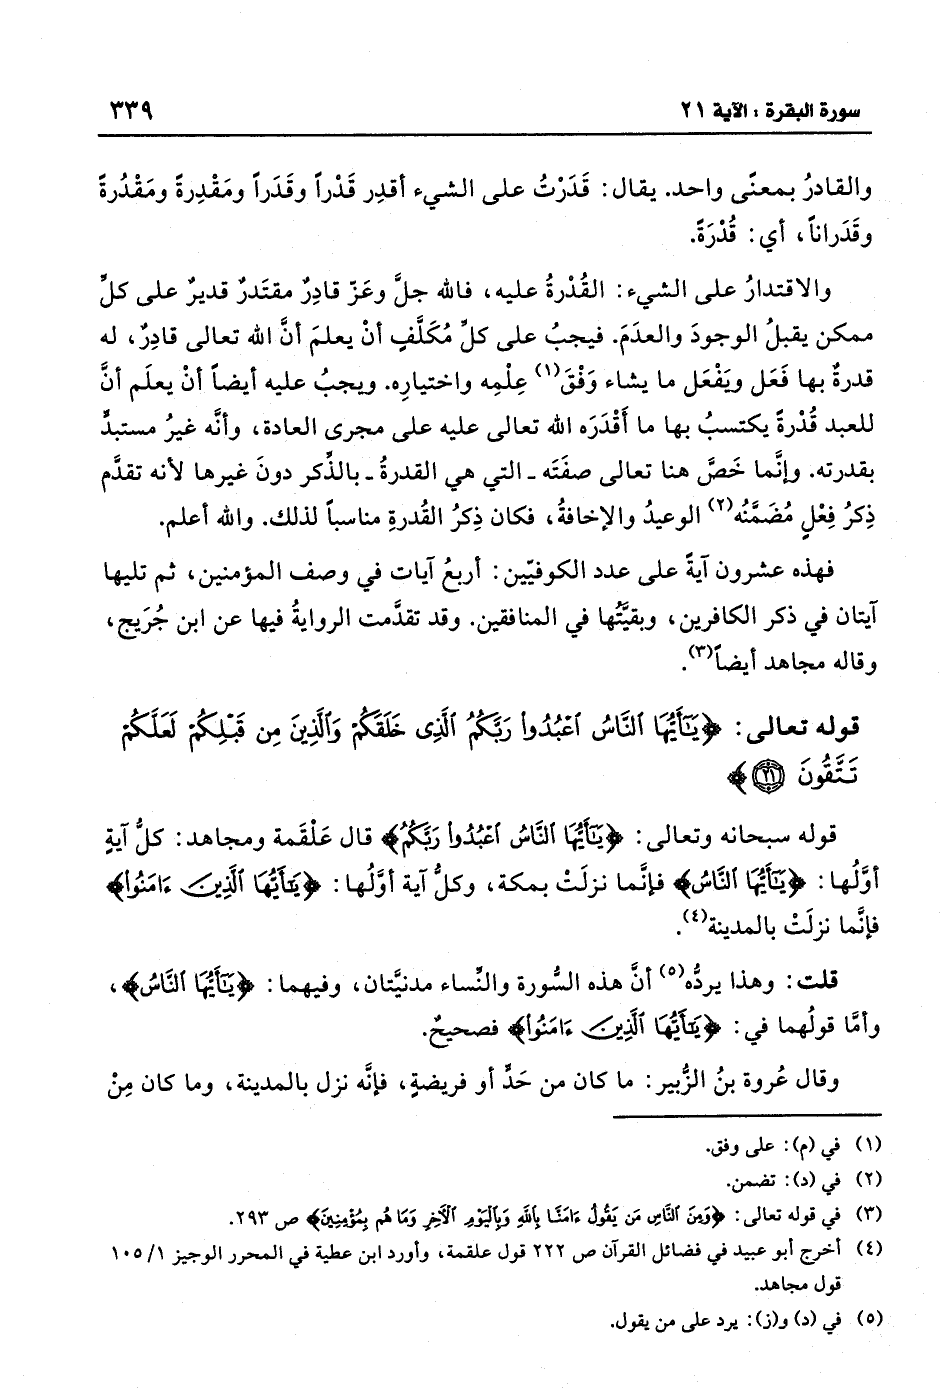 سورة البقرة : الآية ٢١
٣٣٩
والقادرُ بمعنًى واحد. يقال: قَدَرْتُ على الشيء أقدِر قَدْراً وقَدَراً ومَقْدِرةً ومَقْدُرةً
وقَدَراناً، أي: قُدْرَةً.
والاقتدارُ على الشيء: القُدْرةُ عليه، فالله جلَّ وعَزّ قادِرٌ مقتَدرٌ قديرٌ على كلِّ
ممكن يقبلُ الوجودَ والعدَمَ. فيجبُ على كلِّ مُكَلَّفٍ أنْ يعلمَ أنَّ الله تعالى قادِرٌ، له
قدرةٌ بها فَعَل ويَفْعَل ما يشاء وَفْقَ(١) عِلْمِه واختيارِه. ويجبُ عليه أيضاً أنْ يعلَم أنَّ
للعبد قُدْرةً يكتسبُ بها ما أَقْدَرَه الله تعالى عليه على مجرى العادة، وأنَّه غيرُ مستبدٍّ
بقدرته. وإنَّما خَصَّ هنا تعالى صفَتَه ـ التي هي القدرةُ ـ بالذِّكر دونَ غيرها لأنه تقدَّم
ذِكرُ فِعْلٍ مُضَمَّنُه(٢) الوعيدُ والإخافةُ، فكان ذِكرُ القُدرةِ مناسباً لذلك. والله أعلم.
فهذه عشرون آيةً على عدد الكوفيّين: أربعُ آيات في وصف المؤمنين، ثم تليها
آيتان في ذكر الكافرين، وبقيَّتُها في المنافقين. وقد تقدَّمت الروايةُ فيها عن ابن جُرَيج،
وقاله مجاهد أيضاً(٣).
قوله تعالى: ﴿يَـٰٓأَيُّهَا ٱلنَّاسُ ٱعْبُدُواْ رَبَّكُمُ ٱلَّذِى خَلَقَكُمْ وَٱلَّذِينَ مِن قَبْلِكُمْ لَعَلَّكُمْ
تَتَّقُونَ ٢١﴾
قوله سبحانه وتعالى: ﴿يَـٰٓأَيُّهَا ٱلنَّاسُ ٱعْبُدُواْ رَبَّكُمُ﴾ قال عَلْقَمة ومجاهد: كلُّ آيةٍ
أوَّلُها: ﴿يَـٰٓأَيُّهَا ٱلنَّاسُ﴾ فإنَّما نزلَتْ بمكة، وكلُّ آية أوَّلُها: ﴿يَـٰٓأَيُّهَا ٱلَّذِينَ ءَامَنُواْ﴾
فإنَّما نزلَتْ بالمدينة(٤).
قلت: وهذا يردُّه(٥) أنَّ هذه السُّورة والنِّساء مدنيَّتان، وفيهما: ﴿يَـٰٓأَيُّهَا ٱلنَّاسُ﴾،
وأمَّا قولُهما في: ﴿يَـٰٓأَيُّهَا ٱلَّذِينَ ءَامَنُواْ﴾ فصحيحٌ.
وقال عُروة بنُ الزُّبير: ما كان من حَدٍّ أو فريضةٍ، فإنَّه نزل بالمدينة، وما كان مِنْ
(١) في (م): على وفق.
(٢) في (د): تضمن.
(٣) في قوله تعالى: ﴿وَمِنَ ٱلنَّاسِ مَن يَقُولُ ءَامَنَّا بِٱللَّهِ وَبِٱلْيَوْمِ ٱلْأَخِرِ وَمَا هُم بِمُؤْمِنِينَ﴾ ص ٢٩٣.
(٤) أخرج أبو عبيد في فضائل القرآن ص ٢٢٢ قول علقمة، وأورد ابن عطية في المحرر الوجيز ١/ ١٠٥
قول مجاهد.
(٥) في (د) و(ز): يرد على من يقول.